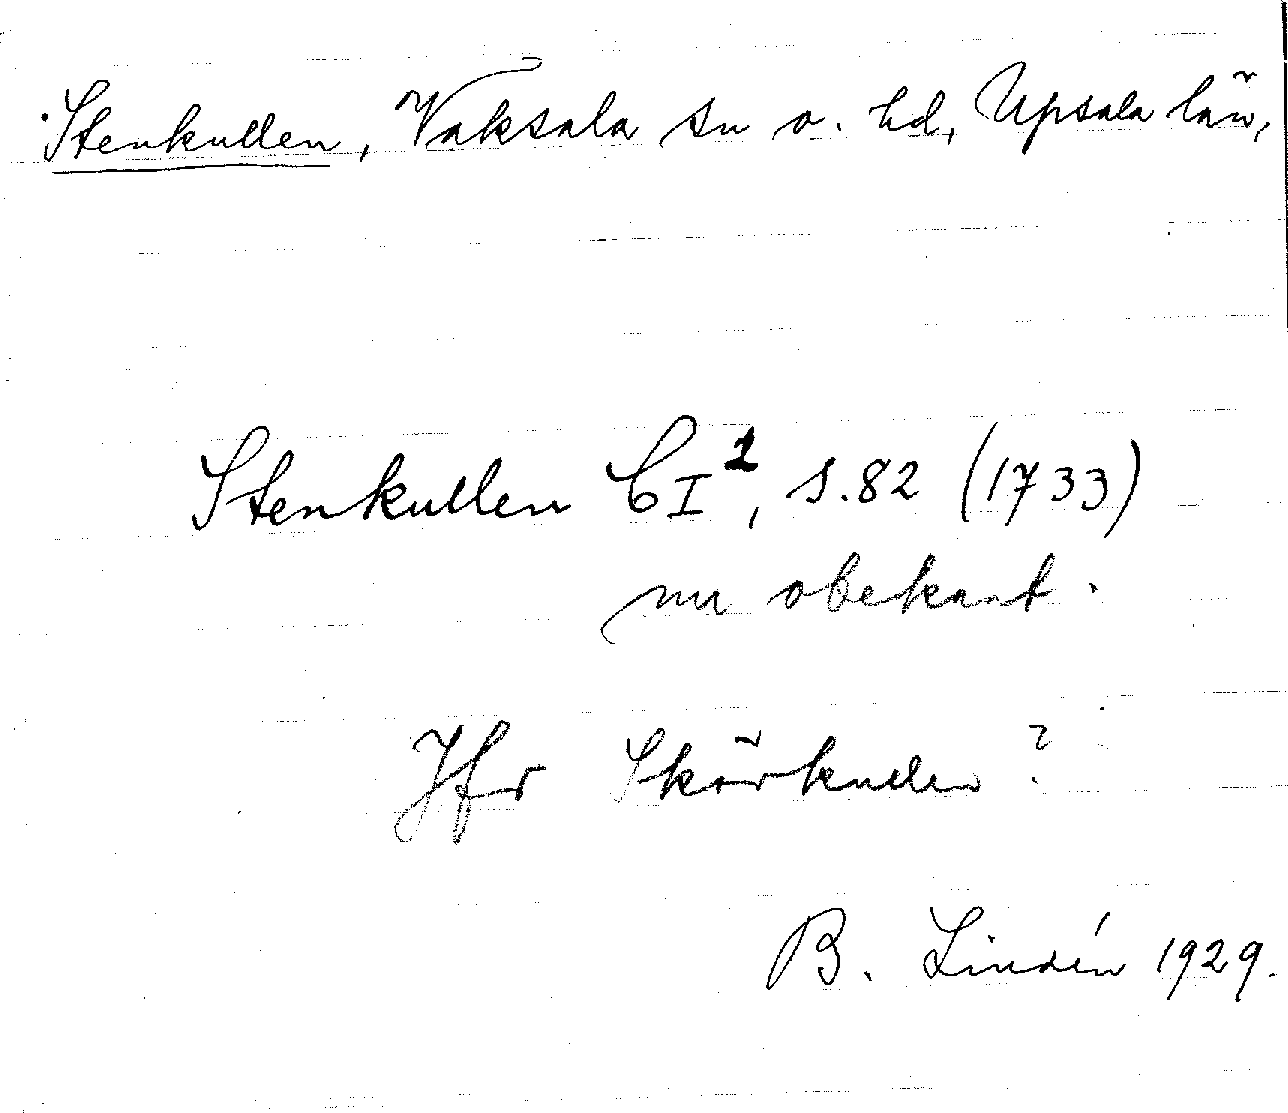 Stenkullen, Vaksala sn o. hd, Upsala län,
Stenkullen CI², s. 82 (1733)
nu obekant.
Jfr Skörkullen ?
B. Lindén 1929.